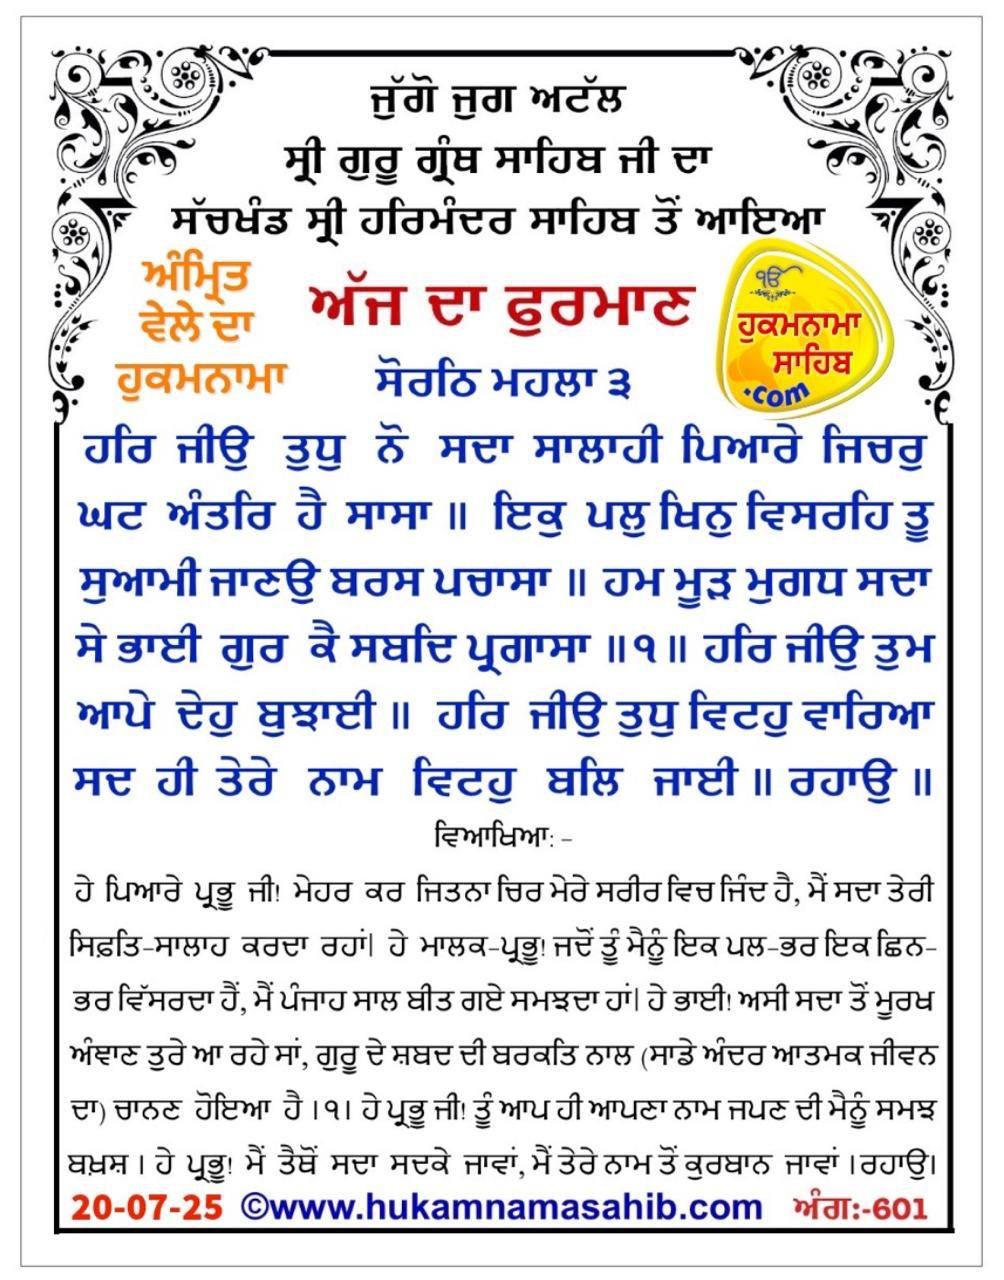 ਜੁੱਗੋ ਜੁਗ ਅਟੱਲ
ਸ੍ਰੀ ਗੁਰੂ ਗ੍ਰੰਥ ਸਾਹਿਬ ਜੀ ਦਾ
ਸੱਚਖੰਡ ਸ੍ਰੀ ਹਰਿਮੰਦਰ ਸਾਹਿਬ ਤੋਂ ਆਇਆ
ਅੰਮ੍ਰਿਤ
ਵੇਲੇ ਦਾ
ਹੁਕਮਨਾਮਾ
ਅੱਜ ਦਾ ਫੁਰਮਾਣ
ੴ
ਹੁਕਮਨਾਮਾ
ਸਾਹਿਬ
.com
ਸੋਰਠਿ ਮਹਲਾ ੩
ਹਰਿ ਜੀਉ ਤੁਧੁ ਨੋ ਸਦਾ ਸਾਲਾਹੀ ਪਿਆਰੇ ਜਿਚਰੁ
ਘਟ ਅੰਤਰਿ ਹੈ ਸਾਸਾ ॥ ਇਕੁ ਪਲੁ ਖਿਨੁ ਵਿਸਰਹਿ ਤੂ
ਸੁਆਮੀ ਜਾਣਉ ਬਰਸ ਪਚਾਸਾ ॥ ਹਮ ਮੂੜ ਮੁਗਧ ਸਦਾ
ਸੇ ਭਾਈ ਗੁਰ ਕੈ ਸਬਦਿ ਪ੍ਰਗਾਸਾ ॥੧॥ ਹਰਿ ਜੀਉ ਤੁਮ
ਆਪੇ ਦੇਹੁ ਬੁਝਾਈ ॥ ਹਰਿ ਜੀਉ ਤੁਧੁ ਵਿਟਹੁ ਵਾਰਿਆ
ਸਦ ਹੀ ਤੇਰੇ ਨਾਮ ਵਿਟਹੁ ਬਲਿ ਜਾਈ ॥ ਰਹਾਉ ॥
ਵਿਆਖਿਆ: –
ਹੇ ਪਿਆਰੇ ਪ੍ਰਭੂ ਜੀ! ਮੇਹਰ ਕਰ ਜਿਤਨਾ ਚਿਰ ਮੇਰੇ ਸਰੀਰ ਵਿਚ ਜਿੰਦ ਹੈ, ਮੈਂ ਸਦਾ ਤੇਰੀ
ਸਿਫ਼ਤਿ-ਸਾਲਾਹ ਕਰਦਾ ਰਹਾਂ| ਹੇ ਮਾਲਕ-ਪ੍ਰਭੂ! ਜਦੋਂ ਤੂੰ ਮੈਨੂੰ ਇਕ ਪਲ-ਭਰ ਇਕ ਛਿਨ-
ਭਰ ਵਿੱਸਰਦਾ ਹੈਂ, ਮੈਂ ਪੰਜਾਹ ਸਾਲ ਬੀਤ ਗਏ ਸਮਝਦਾ ਹਾਂ| ਹੇ ਭਾਈ! ਅਸੀ ਸਦਾ ਤੋਂ ਮੂਰਖ
ਅੰਞਾਣ ਤੁਰੇ ਆ ਰਹੇ ਸਾਂ, ਗੁਰੂ ਦੇ ਸ਼ਬਦ ਦੀ ਬਰਕਤਿ ਨਾਲ (ਸਾਡੇ ਅੰਦਰ ਆਤਮਕ ਜੀਵਨ
ਦਾ) ਚਾਨਣ ਹੋਇਆ ਹੈ ।੧। ਹੇ ਪ੍ਰਭੂ ਜੀ! ਤੂੰ ਆਪ ਹੀ ਆਪਣਾ ਨਾਮ ਜਪਣ ਦੀ ਮੈਨੂੰ ਸਮਝ
ਬਖ਼ਸ਼ । ਹੇ ਪ੍ਰਭੂ! ਮੈਂ ਤੈਥੋਂ ਸਦਾ ਸਦਕੇ ਜਾਵਾਂ, ਮੈਂ ਤੇਰੇ ਨਾਮ ਤੋਂ ਕੁਰਬਾਨ ਜਾਵਾਂ ।ਰਹਾਉ।
20-07-25 ©www.hukamnamasahib.com ਅੰਗ:-601